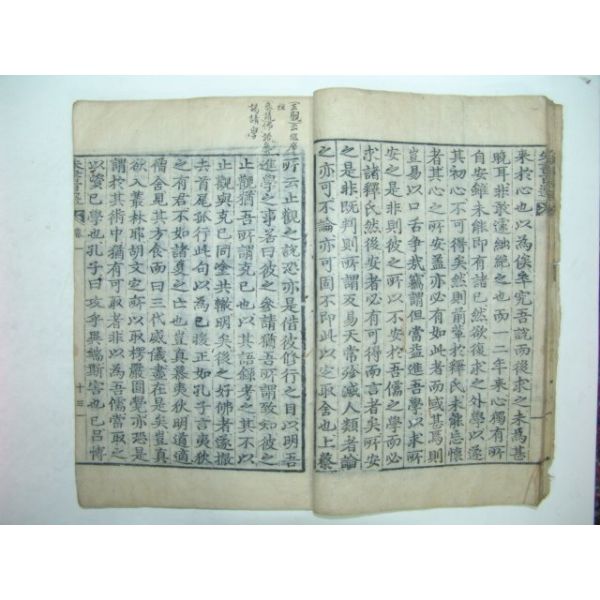 來於心也以爲俟卒究吾說而後求之未爲甚
晚耳非敢遽絀絶之也而一二年來心獨有所
自安雖未能即有諸已然欲復求之外學以遂
其初心不可得矣然則前輩於釋氏未能忘懷
者其心之所安蓋亦必有如此者而或甚焉則
豈易以口舌爭哉竊謂但當益進吾學以求所
安之是非則彼之所以不安於吾儒之學而必
求諸釋氏然後安者必有可得而言者矣所安
之是非旣判則所謂反易天常殄滅人類者論
之亦可不論亦可固不即此以定取舍也上蔡
所云止觀之說恐亦是借彼修行之目以明吾
進學之事若曰彼之參請猶吾所謂致知彼之
止觀猶吾所謂克已也以其語錄考之其不以
止觀與克已同塗共轍明矣後之好佛者遂掇
去首尾孤行此句以爲已援正如孔子言夷狄
之有君不如諸夏之亡也豈眞慕夷狄明道適
僧舍見其方食而曰三代威儀盡在是矣豈眞
欲入叢林耶胡文定所以取楞嚴圓覺亦恐是
謂於其術中猶有可取者非以爲吾儒當取之
以資已學也孔子曰攻乎異端斯害也已呂博
十三